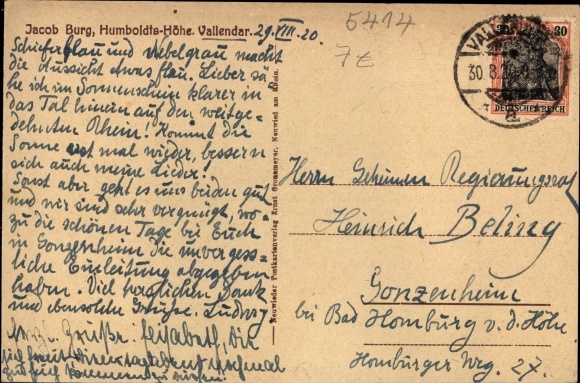 Jacob Burg, Humboldts-Höhe. Vallendar.
29.VIII.20
5414
7 £
Schieferblau und Nebelgrau macht
die Aussicht etwas flau. Lieber sä-
he ich im Sonnenschein klarer in
das Tal hinein auf den weitge-
dehnten Rhein! Kommt die
Sonne erst mal wieder, bessern
sich auch meine Lieder!
Sonst aber geht es uns beiden gut
und wir sind sehr vergnügt, wo-
zu die schönen Tage bei Euch
in Gonzenheim die unvergess-
liche Einleitung abgegeben
haben. Viel herzlichen Dank
und ebensolche Grüsse. Ludwig
Grüße. Elisabeth, die
sich freut
Neuwieder Postkartenverlag Ernst Grossmeyer, Neuwied am Rhein.
VALLENDAR
30.8.20
30
DEUTSCHES REICH
Herrn Geheimen Regierungsrat
Heinrich Beling
Gonzenheim
bei Bad Homburg v. d. Höhe
Homburger Weg 27.